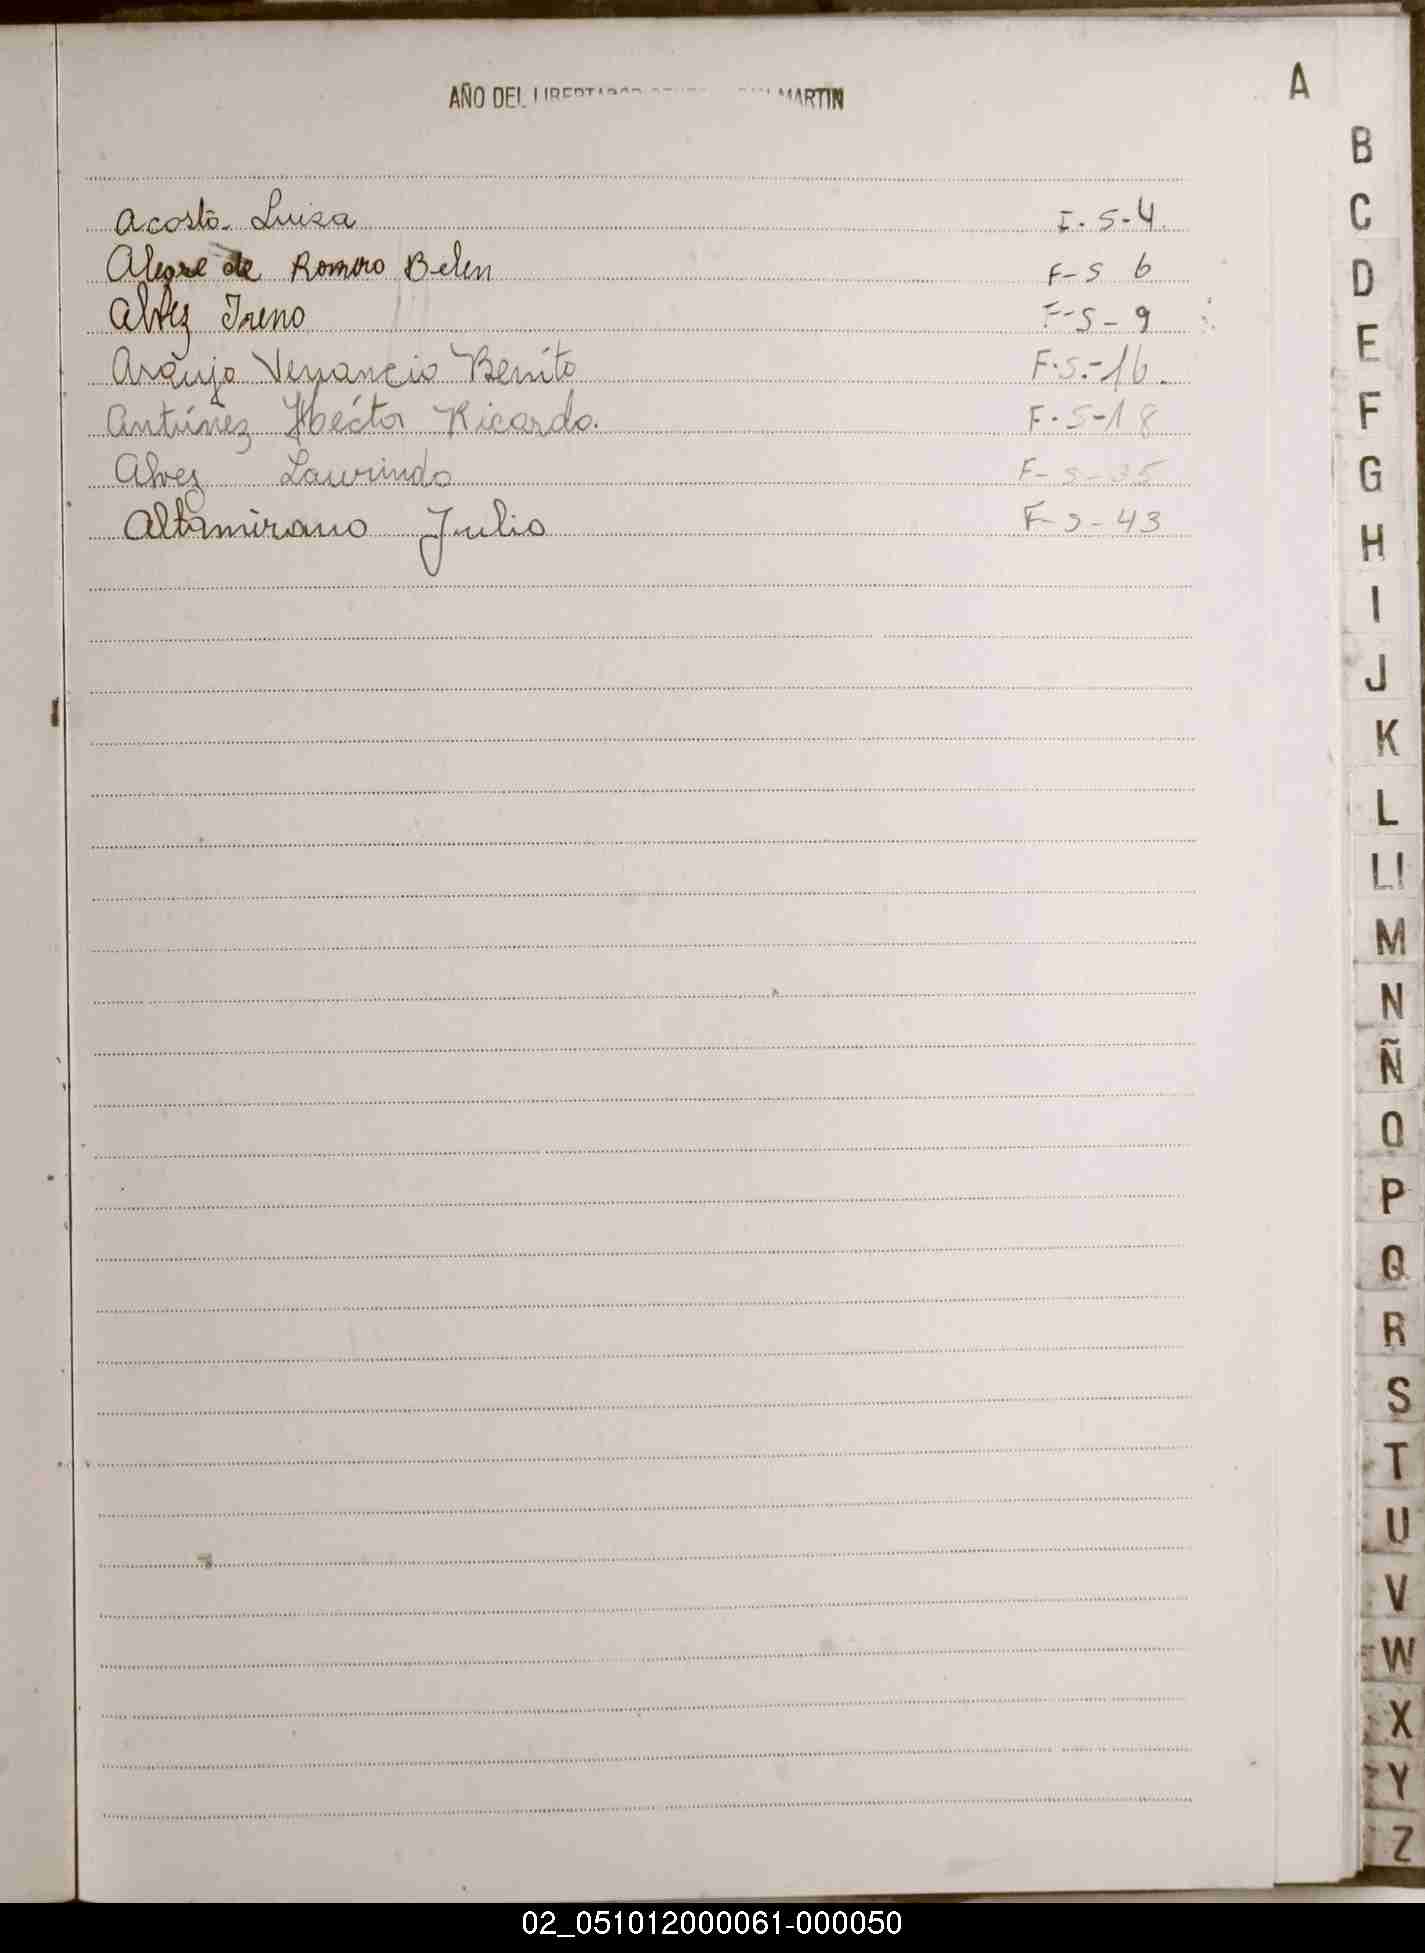 AÑO DEL LIBERTADOR GENERAL SAN MARTIN
A
Acosta Luisa F-S-4
Alegre de Romero Belen F-S 6
Alvez Ireno F-S-9
Araujo Venancio Benito F.S.-16.
Antúnez Héctor Ricardo. F.S-18
Alvez Laurindo F-S-35
Altamirano Julio F-S-43
B
C
D
E
F
G
H
I
J
K
L
Ll
M
N
Ñ
O
P
Q
R
S
T
U
V
W
X
Y
Z
02_051012000061-000050